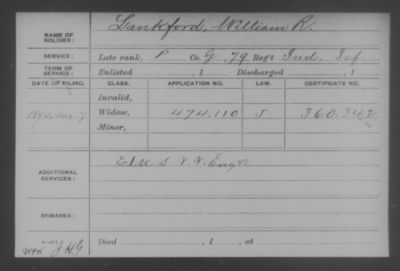 NAME OF
SOLDIER:
Lankford, William R.
SERVICE:
Late rank, P Co. G, 79 Reg't Ind. Inf
TERM OF
SERVICE:
Enlisted , 1 Discharged , 1
DATE OF FILING. CLASS. APPLICATION NO. LAW. CERTIFICATE NO.
Invalid,
Widow, 474.110 J 360.342
Minor,
ADDITIONAL
SERVICES:
E 1 U.S. V.V. Engr
REMARKS:
Died , 1 , at